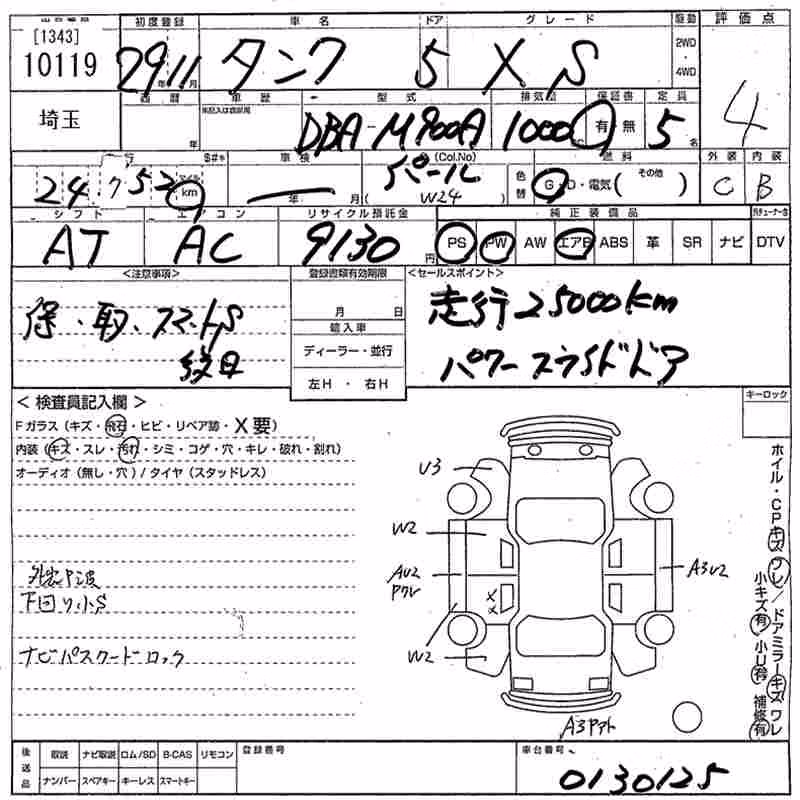 [1343]
10119
埼玉
初度登録
29 11
年 月
車名
タンク
ドア
5
グレード
X S
駆動
2WD
4WD
評価点
4
西暦
年
車歴
型式
DBA-M900A
排気量
1000
CC
保証書
有・無
定員
5
名
24 752
km
車検
年 月
色(Col.No)
パール
(W24)
色替
燃料
G・D・電気( その他 )
外装
C
内装
B
シフト
AT
エアコン
AC
リサイクル預託金
9130
円
純正装備品
PS PW AW エアB ABS 革 SR ナビ DTV
<注意事項>
保・取・スマートS
登録書類有効期限
月 日
輸入車
ディーラー・並行
左H ・ 右H
<セールスポイント>
走行25000km
パワースライドドア
キーロック
< 検査員記入欄 >
Fガラス(キズ・飛石・ヒビ・リペア跡・X要)
内装(キズ・スレ・汚れ・シミ・コゲ・穴・キレ・破れ・割れ)
オーディオ(無し・穴)/タイヤ(スタッドレス)
下回り小S
ナビパスワードロック
U3
W2
AU2
Pワレ
W2
A3U2
××
ホイル・CPキズワレ/ドアミラーキズワレ
小キズ有 小U有 補修有
後送品
取説 ナビ取説 ロム/SD B-CAS リモコン
ナンバー スペアキー キーレス スマートキー
登録番号
車台番号
0130125